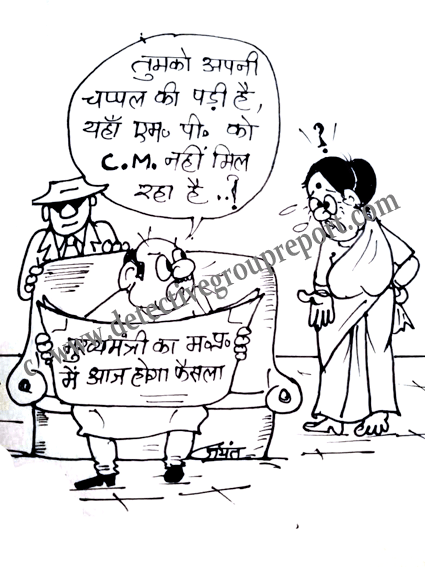 तुमको अपनी
चप्पल की पड़ी है,
यहाँ एम. पी. को
C.M. नहीं मिल
रहा है ..!
?
मुख्यमंत्री का म.प्र.
में आज होगा फैसला
www.detectivegroupreport.com